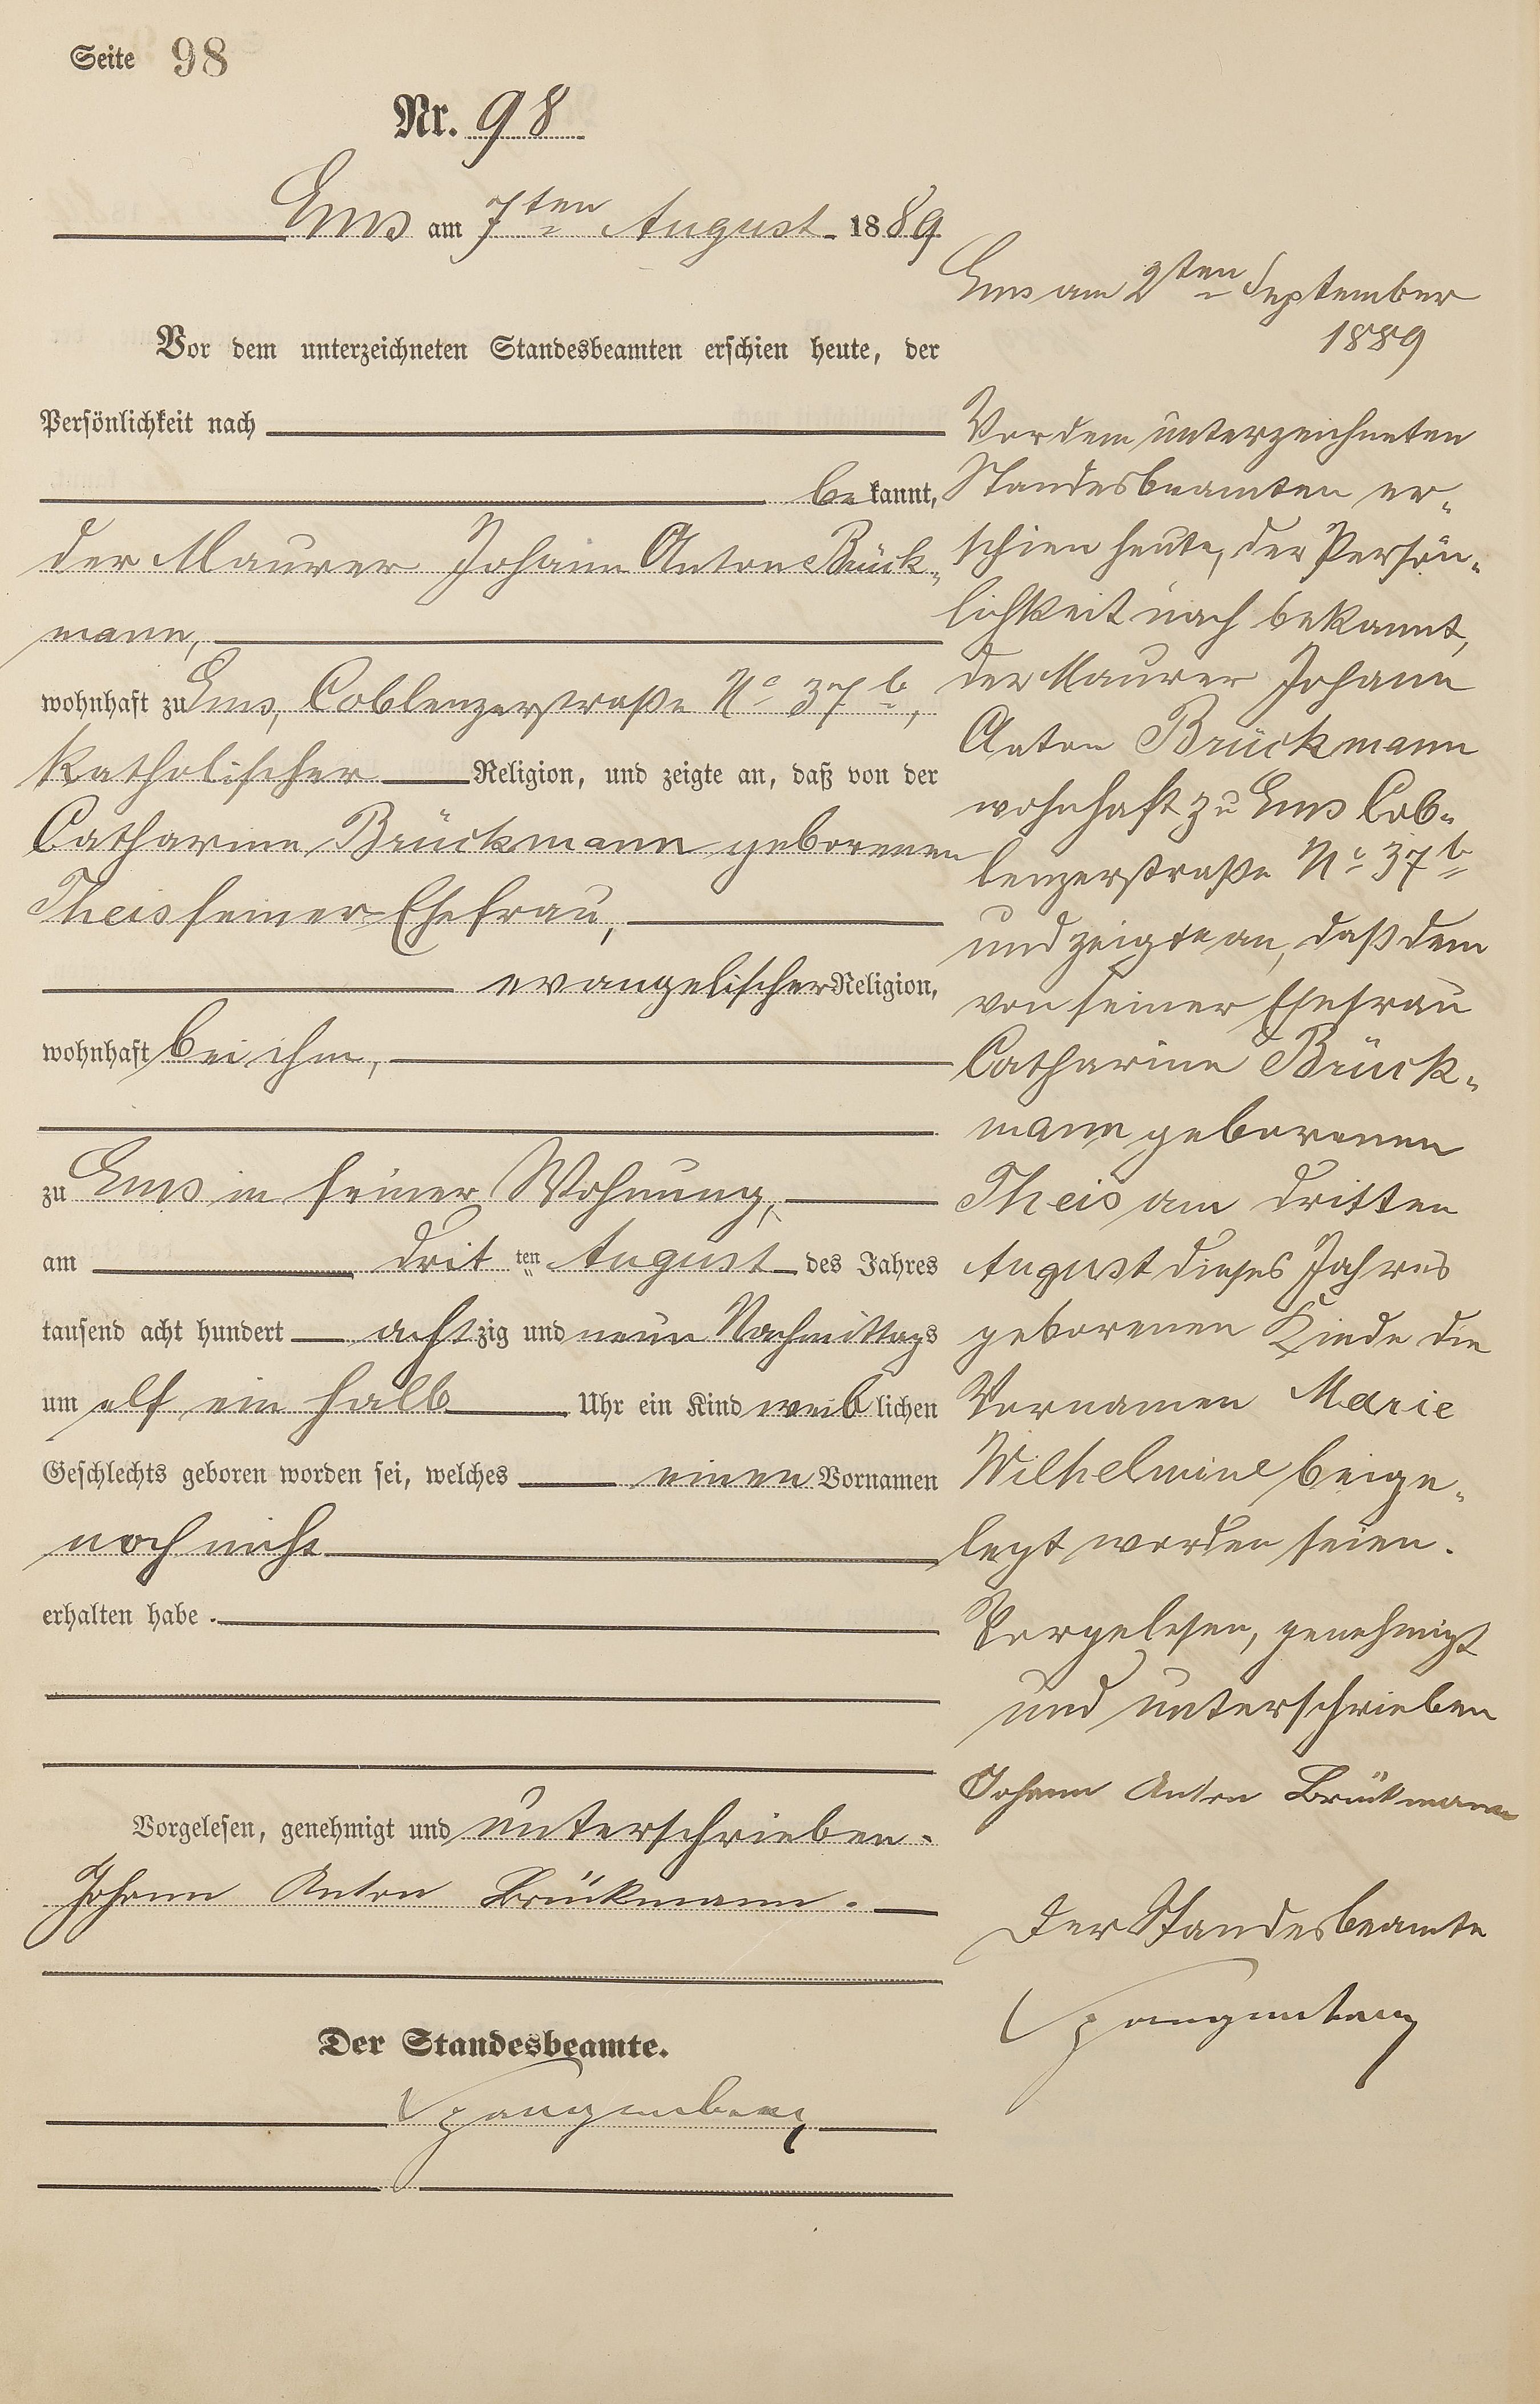 Seite 98
Nr. 98
Ems am 7ten August 1889
Vor dem unterzeichneten Standesbeamten erschien heute, der
Persönlichkeit nach
bekannt,
der Maurer Johann Anton Brück-
mann,
wohnhaft zu Ems, Coblenzerstraße No 37b,
katholischer Religion, und zeigte an, daß von der
Catharine Brückmann geborenen
Theis seiner Ehefrau,
evangelischer Religion,
wohnhaft bei ihm,
zu Ems in seiner Wohnung,
am dritten August des Jahres
tausend acht hundert achtzig und neun Nachmittags
um elf ein halb Uhr ein Kind weiblichen
Geschlechts geboren worden sei, welches einen Vornamen
noch nicht
erhalten habe.
Vorgelesen, genehmigt und unterschrieben.
Johann Anton Brückmann.
Der Standesbeamte.
Spangenberg
Ems am 2ten September
1889
Vor dem unterzeichneten
Standesbeamten er-
schien heute, der Persön-
lichkeit nach bekannt,
der Maurer Johann
Anton Brückmann
wohnhaft zu Ems Cob-
lenzerstraße No 37b
und zeigte an, daß dem
von seiner Ehefrau
Catharine Brück-
mann geborenen
Theis am dritten
August dieses Jahres
geborenen Kinde die
Vornamen Marie
Wilhelmine beige-
legt worden seien.
Vorgelesen, genehmigt
und unterschrieben
Johann Anton Brückmann
Der Standesbeamte
Spangenberg